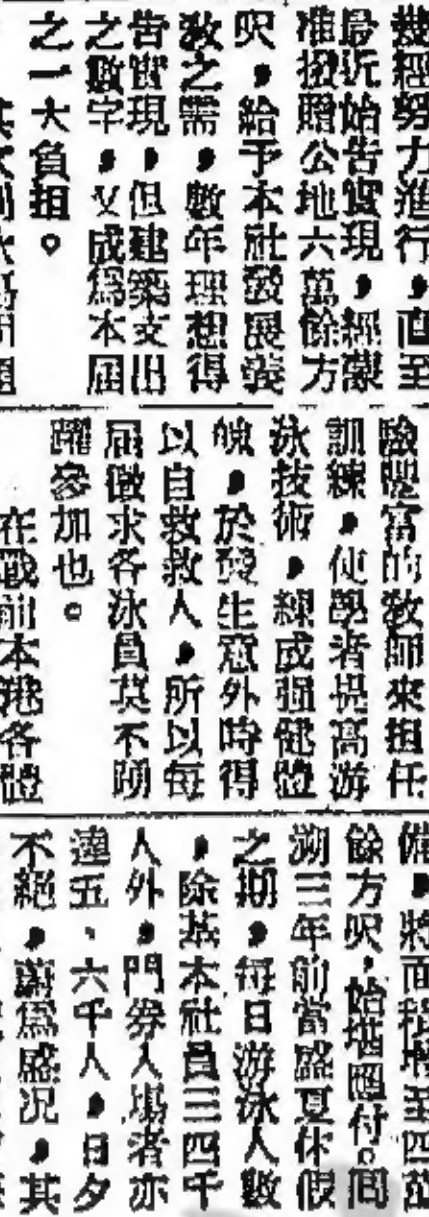 幾經努力進行，直至
最近始告實現，經蒙
准撥贈公地六萬餘方
呎，給予本社發展裝
敎之需，數年理想得
告實現，但建築支出
之數字，又成爲本屆
之一大負担。
驗豐富的敎師來担任
訓練，使學者提高游
泳技術，練成强健體
魄，於發生意外時得
以自救救人，所以每
屆徵求各泳員莫不踴
躍參加也。
在戰前本港各體
備，將面積增至四萬
餘方呎，始堪應付。回
溯三年前當盛夏休假
之期，每日游泳人數
，除基本社員三四千
人外，門券入塲者亦
達五、六千人，日夕
不絕，誠爲盛况，其